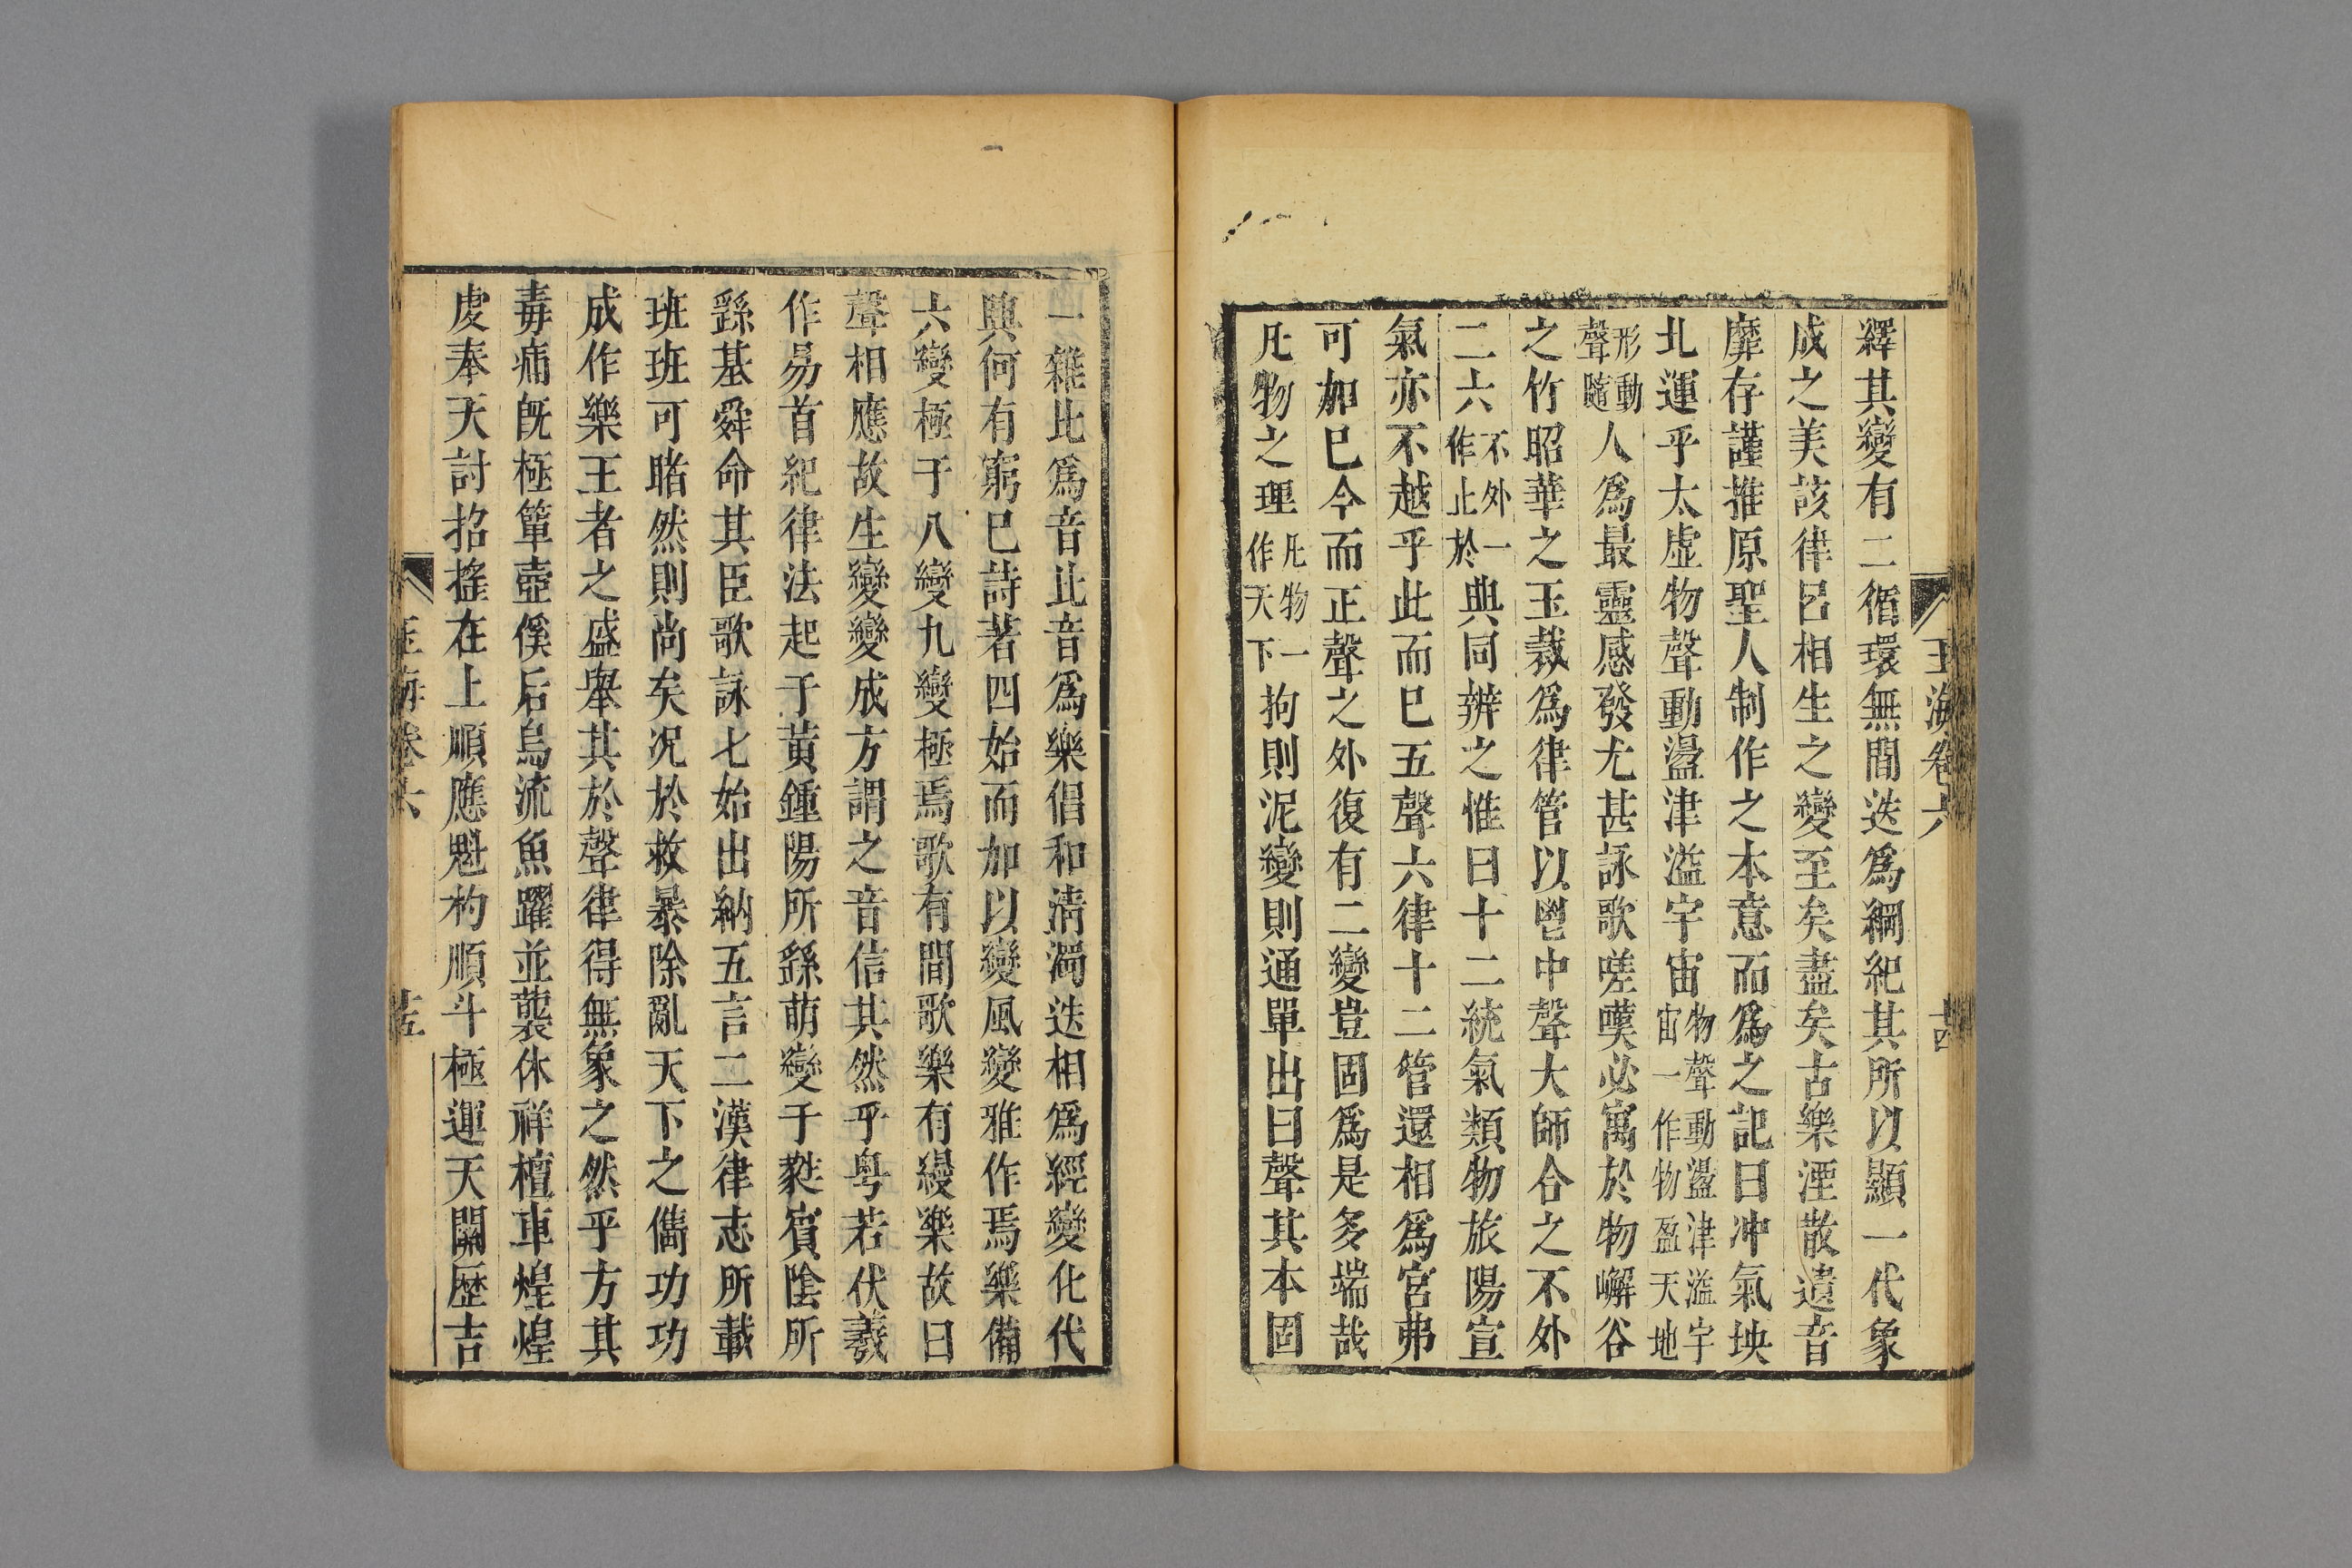 玉海卷六 十四
繹其變有二循環無間迭爲綱紀其所以顯一代象
成之美該律呂相生之變至矣盡矣古樂湮散遺音
靡存謹推原聖人制作之本意而爲之記曰沖氣坱
北運乎太虛物聲動盪津溢宇宙物聲動盪津溢宇宙一作物盈天地
形動聲隨人爲最靈感發尤甚詠歌嗟嘆必寓於物嶰谷
之竹昭華之玉裁爲律管以鬯中聲大師合之不外
二六不外一作止於與同辨之惟曰十二統氣類物旅陽宣
氣亦不越乎此而已五聲六律十二管還相爲宮弗
可加已今而正聲之外復有二變豈固爲是多端哉
凡物之理凡物一作天下拘則泥變則通單出曰聲其本固
一雜比爲音比音爲樂倡和淸濁迭相爲經變化代
興何有窮已詩著四始而加以變風變雅作焉樂備
六變極于八變九變極焉歌有間歌樂有縵樂故曰
聲相應故生變變成方謂之音信其然乎粤若伏羲
作易首紀律法起于黃鍾陽所繇萌變于蕤賓陰所
繇基舜命其臣歌詠七始出納五言二漢律志所載
班班可睹然則尚矣况於救暴除亂天下之儁功功
成作樂王者之盛舉其於聲律得無象之然乎方其
毒痡旣極簞壺徯后烏流魚躍並襲休祥檀車煌煌
虔奉天討招搖在上順應魁杓順斗極運天關歷吉
玉海卷六 十五